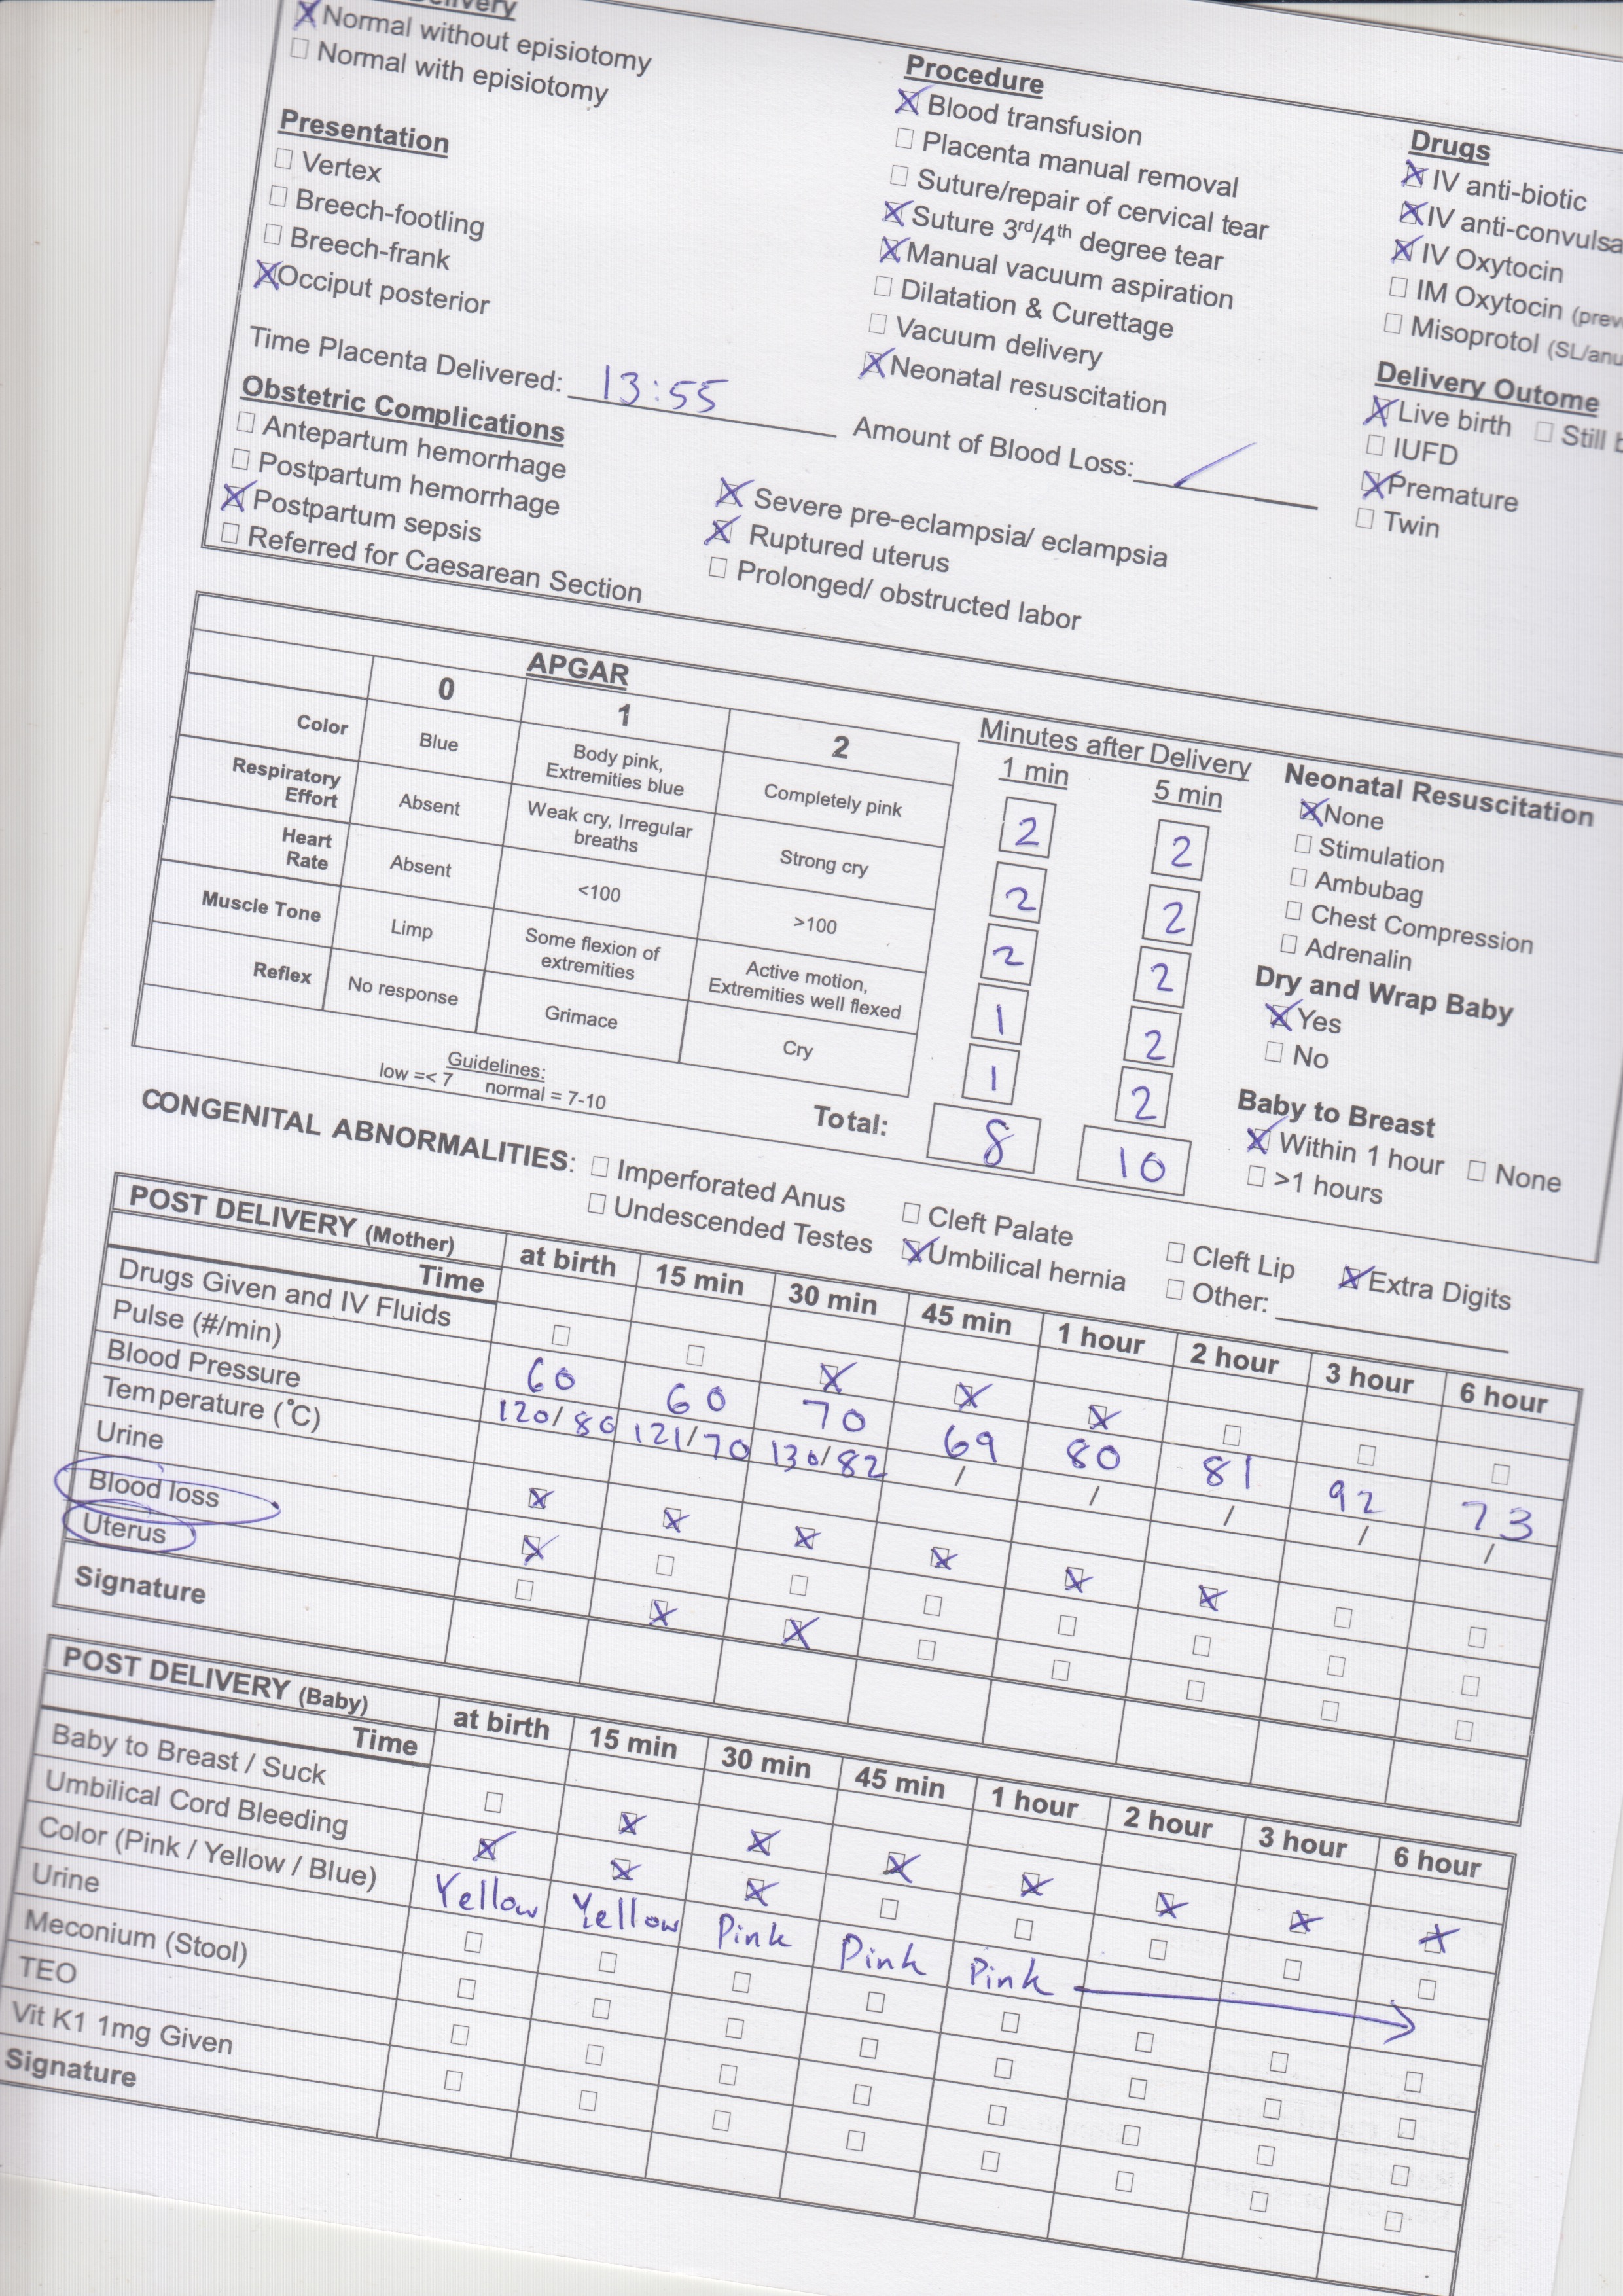 Normal without episiotomy
Normal with episiotomy
Presentation
Vertex
Breech-footling
Breech-frank
Occiput posterior
Time Placenta Delivered: 13:55
Procedure
Blood transfusion
Placenta manual removal
Suture/repair of cervical tear
Suture 3rd/4th degree tear
Manual vacuum aspiration
Dilatation & Curettage
Vacuum delivery
Neonatal resuscitation
Amount of Blood Loss: /
Drugs
IV anti-biotic
IV anti-convulsa
IV Oxytocin
IM Oxytocin (prev
Misoprotol (SL/anu
Delivery Outome
Live birth Still b
IUFD
Premature
Twin
Obstetric Complications
Antepartum hemorrhage
Postpartum hemorrhage
Postpartum sepsis
Referred for Caesarean Section
Severe pre-eclampsia/ eclampsia
Ruptured uterus
Prolonged/ obstructed labor
APGAR
0 1 2
Color Blue Body pink, Extremities blue Completely pink
Respiratory Effort Absent Weak cry, Irregular breaths Strong cry
Heart Rate Absent <100 >100
Muscle Tone Limp Some flexion of extremities Active motion, Extremities well flexed
Reflex No response Grimace Cry
Guidelines:
low =< 7 normal = 7-10
Minutes after Delivery
1 min 5 min
2 2
2 2
2 2
1 2
1 2
Total: 8 10
Neonatal Resuscitation
None
Stimulation
Ambubag
Chest Compression
Adrenalin
Dry and Wrap Baby
Yes
No
Baby to Breast
Within 1 hour None
>1 hours
CONGENITAL ABNORMALITIES: Imperforated Anus Cleft Palate Cleft Lip Extra Digits
Undescended Testes Umbilical hernia Other:
POST DELIVERY (Mother)
Time at birth 15 min 30 min 45 min 1 hour 2 hour 3 hour 6 hour
Drugs Given and IV Fluids
Pulse (#/min) 60 60 70 69 80 81 92 73
Blood Pressure 120/80 121/70 130/82 / / / / /
Temperature (°C)
Urine
Blood loss
Uterus
Signature
POST DELIVERY (Baby)
Time at birth 15 min 30 min 45 min 1 hour 2 hour 3 hour 6 hour
Baby to Breast / Suck
Umbilical Cord Bleeding
Color (Pink / Yellow / Blue) Yellow Yellow Pink Pink Pink
Urine
Meconium (Stool)
TEO
Vit K1 1mg Given
Signature